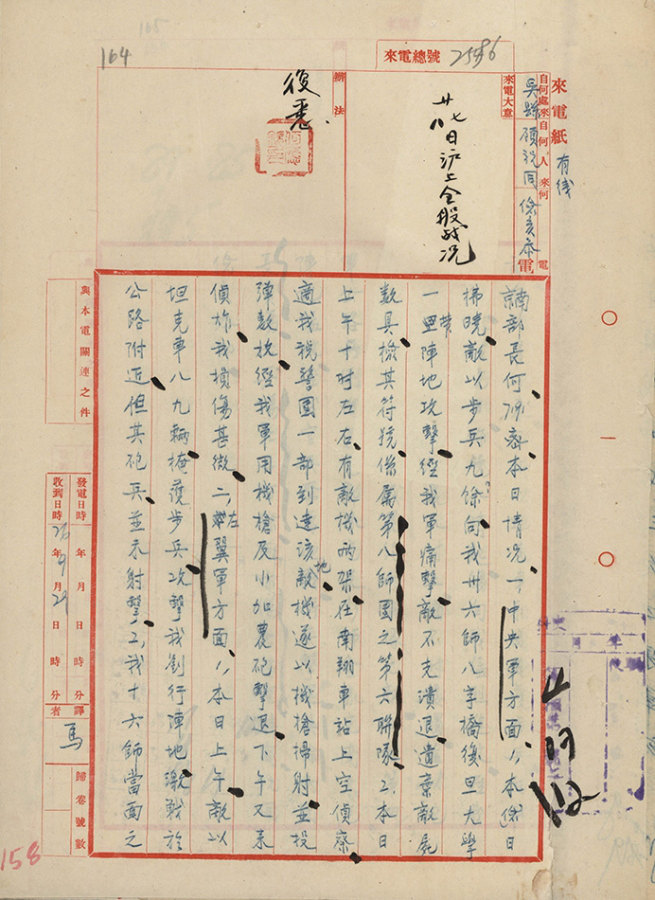 來電紙 有线
自何處來自何人來何電
吳縣顧祝同
電
來電總號
來電大意
日沪上全般战况
辦法
復悉
164
南京部長何密本日情況一、中央軍方面1、本儉日
拂曉敵以步兵九餘向我卅六師八字橋復旦大學
一帶陣地攻擊經我軍痛擊敵不克潰退遺棄敵屍
數具檢其符號係屬第八師團之第六聯隊2、本日
上午十时左右有敵機兩架在南翔車站上空偵察
適我稅警團一部到達該地敵機遂以機槍掃射並投
彈數枚經我軍用機槍及小加農砲擊退下午又来
偵炸我損傷甚微二、左翼軍方面1、本日上午敵以
坦克車八九輛掩護步兵攻擊我劉行陣地激戰於
公路附近但其砲兵並未射擊2、我十六師當面之
與本電關連之件
發電日時 年 月 日 時 分
收到日時 26年9月29日 時 分
譯者 馬
歸卷號數
158
○一○
112